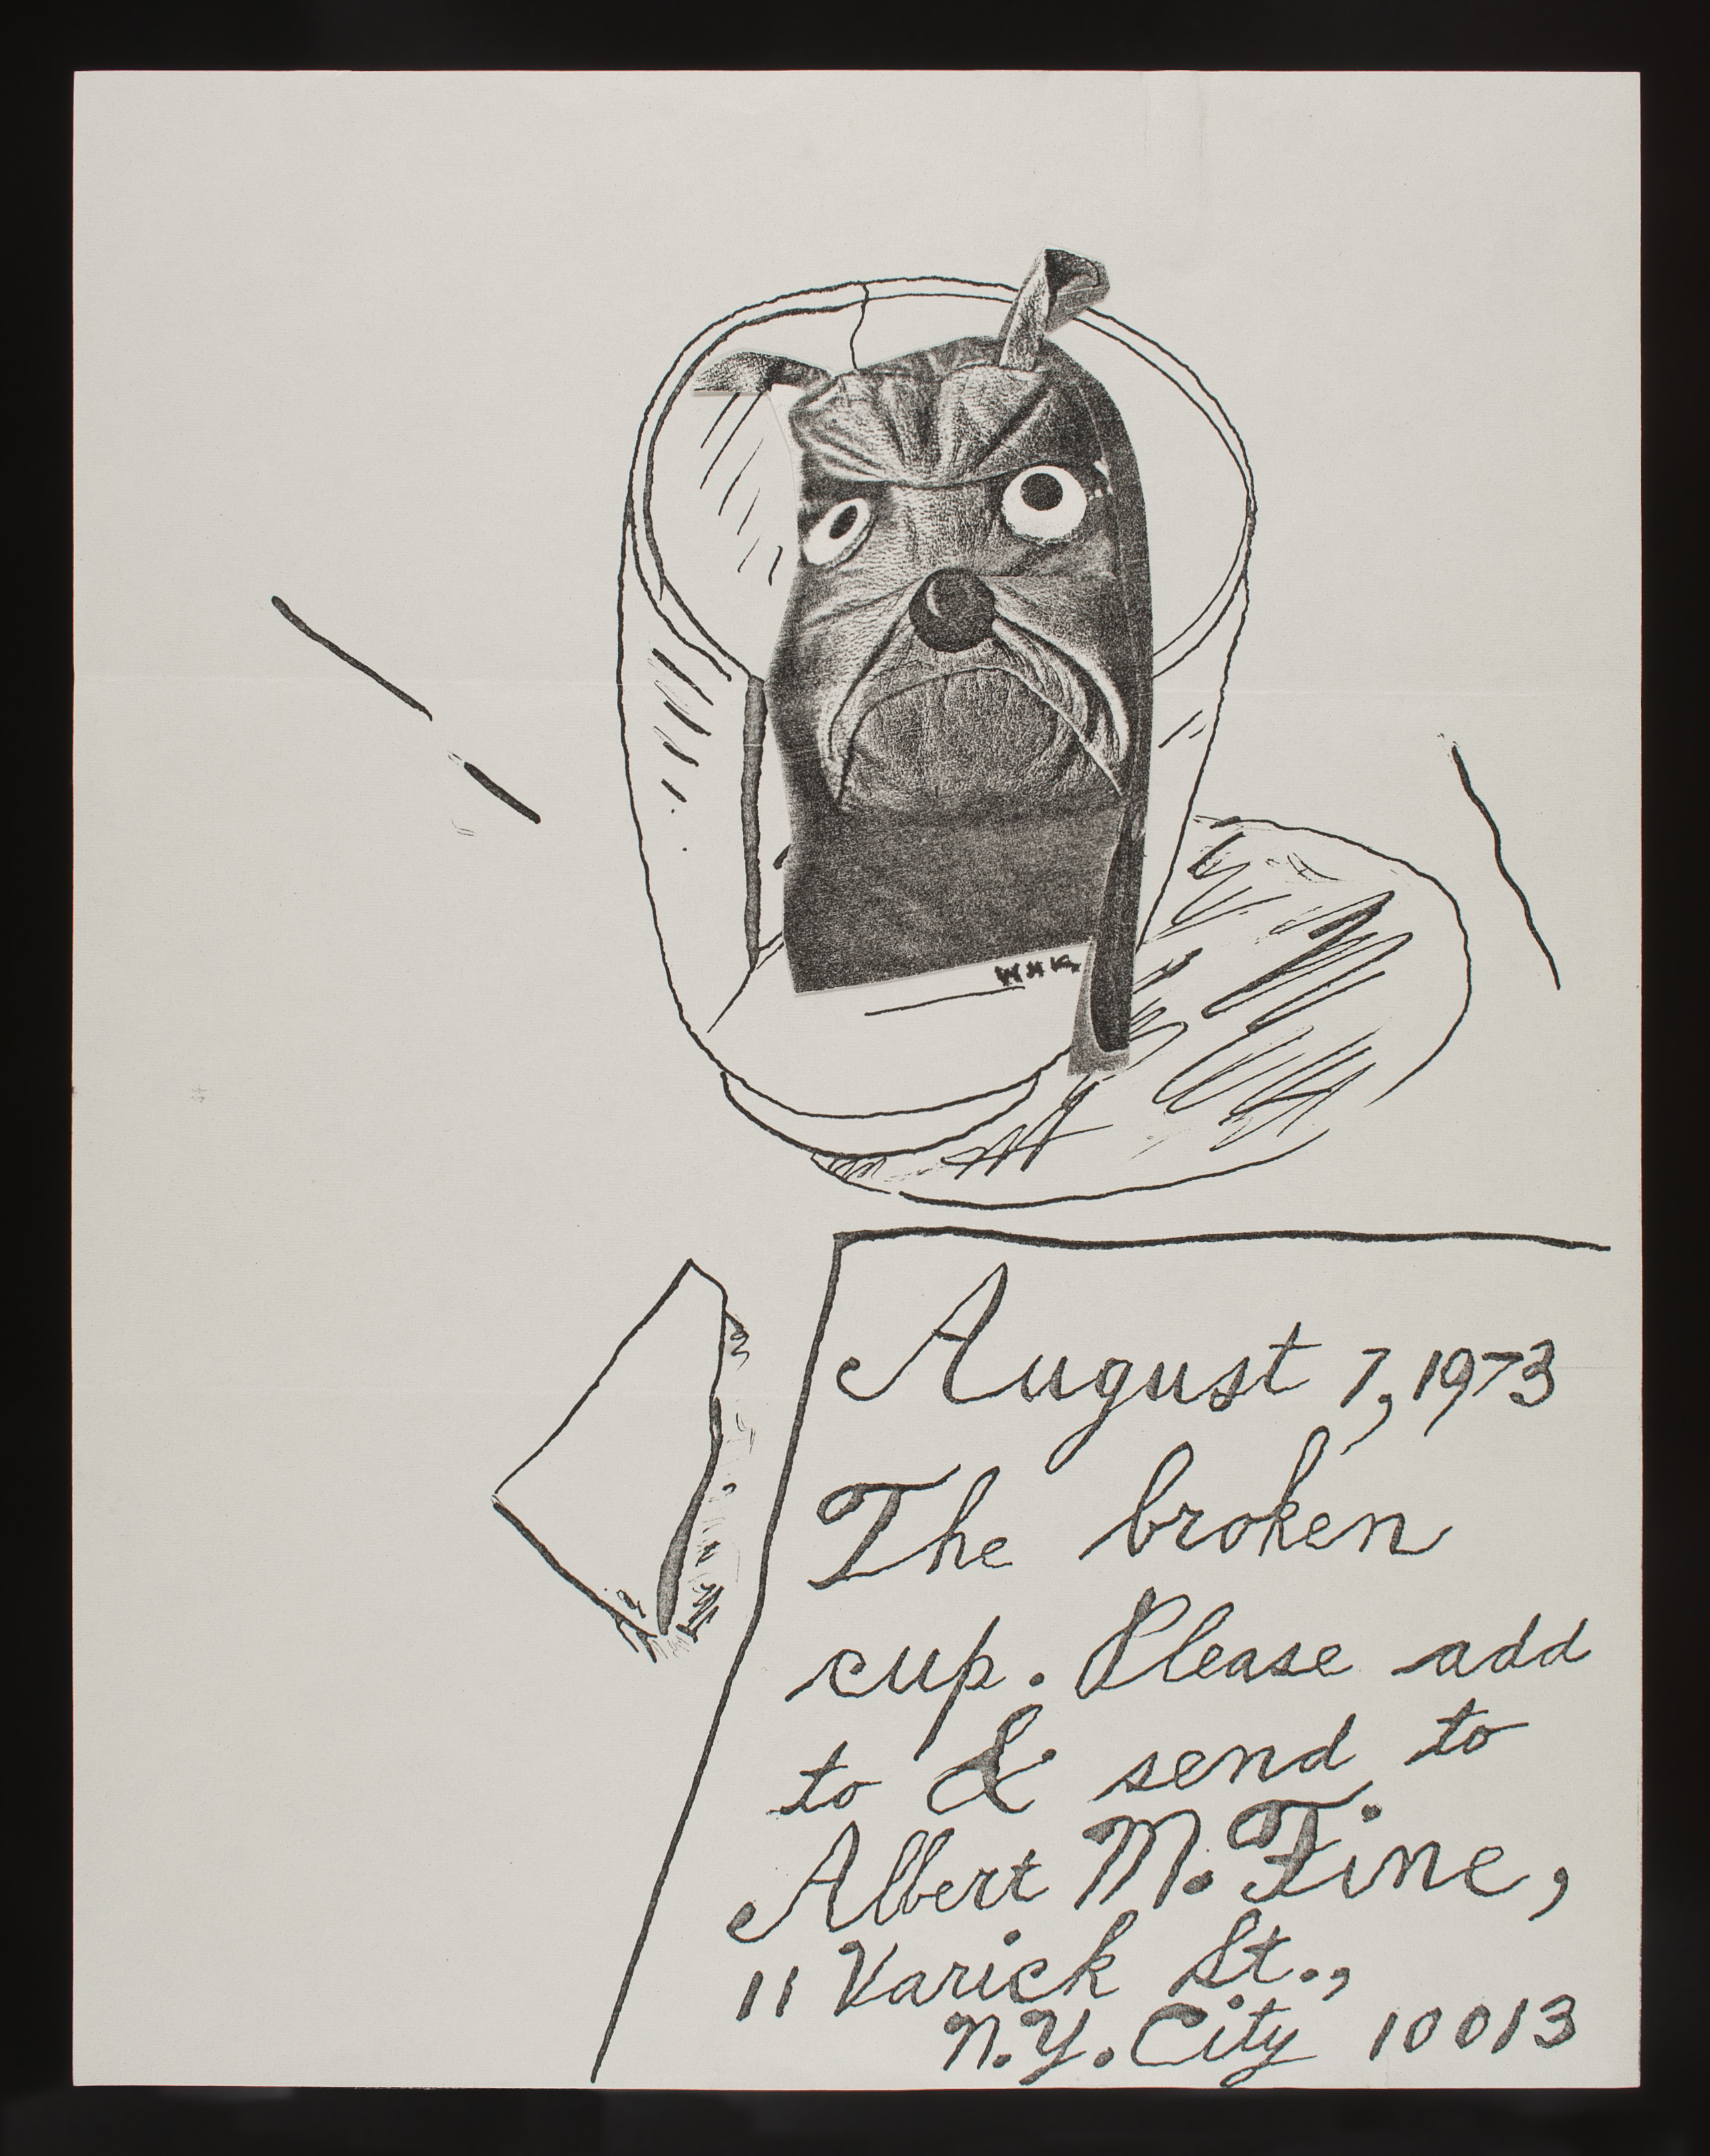 WHK
August 7, 1973
The broken
cup. Please add
to & send to
Albert M. Fine,
11 Varick St.,
N.Y. City 10013